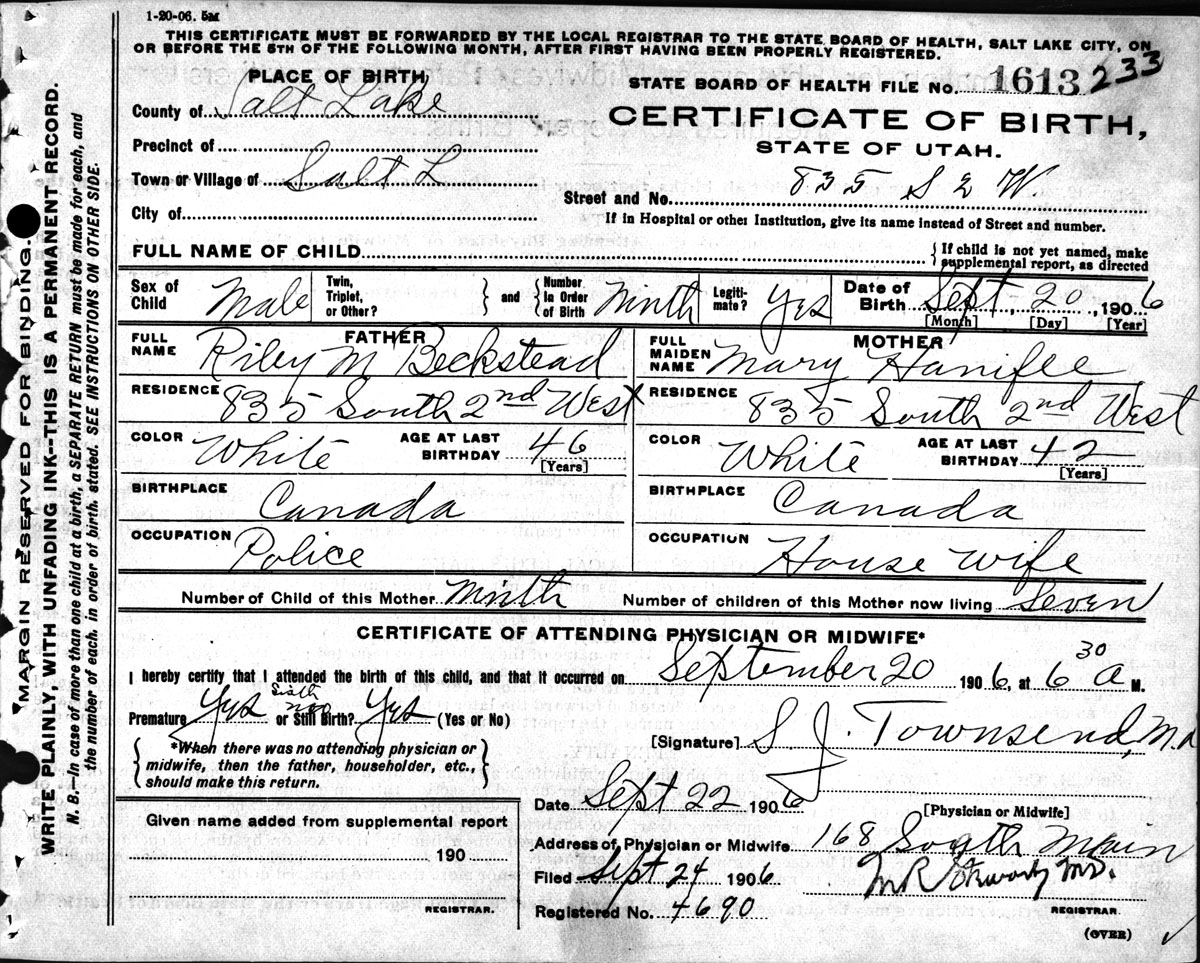 1-20-06. 5M
THIS CERTIFICATE MUST BE FORWARDED BY THE LOCAL REGISTRAR TO THE STATE BOARD OF HEALTH, SALT LAKE CITY, ON
OR BEFORE THE 5TH OF THE FOLLOWING MONTH, AFTER FIRST HAVING BEEN PROPERLY REGISTERED.
PLACE OF BIRTH
STATE BOARD OF HEALTH FILE No. 1613 233
County of Salt Lake
CERTIFICATE OF BIRTH,
STATE OF UTAH.
Precinct of
Town or Village of Salt L
Street and No. 835 S 2 W.
City of
If in Hospital or other Institution, give its name instead of Street and number.
FULL NAME OF CHILD
{ If child is not yet named, make
supplemental report, as directed
Sex of Child Male
Twin, Triplet, or Other? } and { Number In Order of Birth Ninth
Legiti-mate? Yes
Date of Birth Sept, 20, 1906
[Month] [Day] [Year]
FATHER
FULL NAME Riley M Beckstead
RESIDENCE 835 South 2nd West
COLOR White AGE AT LAST BIRTHDAY 46
[Years]
BIRTHPLACE Canada
OCCUPATION Police
MOTHER
FULL MAIDEN NAME Mary Hanifee
RESIDENCE 835 South 2nd West
COLOR White AGE AT LAST BIRTHDAY 42
[Years]
BIRTHPLACE Canada
OCCUPATION House wife
Number of Child of this Mother Ninth Number of children of this Mother now living Seven
CERTIFICATE OF ATTENDING PHYSICIAN OR MIDWIFE*
I hereby certify that I attended the birth of this child, and that it occurred on September 20 1906, at 6 30 A M.
Premature Yes Sixth mo or Still Birth? Yes (Yes or No)
{ *When there was no attending physician or
midwife, then the father, householder, etc.,
should make this return. }
[Signature] S. J. Townsend, M.D
[Physician or Midwife]
Date Sept 22 1906
Given name added from supplemental report
190
REGISTRAR.
Address of Physician or Midwife 168 South Main
Filed Sept 24 1906
M R Stewart MD.
Registered No. 4690
REGISTRAR.
(OVER)
MARGIN RESERVED FOR BINDING.
WRITE PLAINLY, WITH UNFADING INK--THIS IS A PERMANENT RECORD.
N. B.—In case of more than one child at a birth, a SEPARATE RETURN must be made for each, and
the number of each, in order of birth, stated. SEE INSTRUCTIONS ON OTHER SIDE.